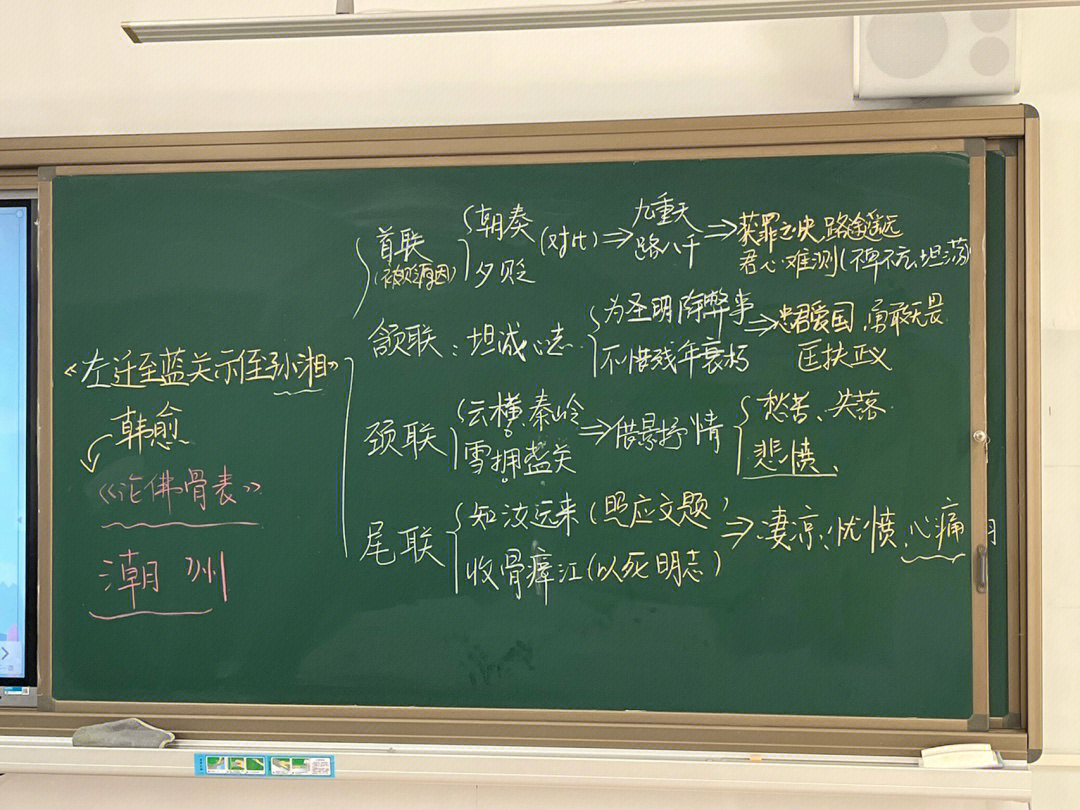 《左迁至蓝关示侄孙湘》
韩愈
《论佛骨表》
潮州
首联
(被贬原因)
朝奏
夕贬
(对比)
九重天
路八千
获罪之快,路途遥远
君心难测(不卑不亢,坦荡)
颔联:坦诚心志
为圣明除弊事
不惜残年衰朽
忠君爱国,勇敢无畏
匡扶正义
颈联
云横秦岭
雪拥蓝关
借景抒情
愁苦、失落
悲愤、
尾联
知汝远来(照应文题)
收骨瘴江(以死明志)
凄凉、忧愤、心痛